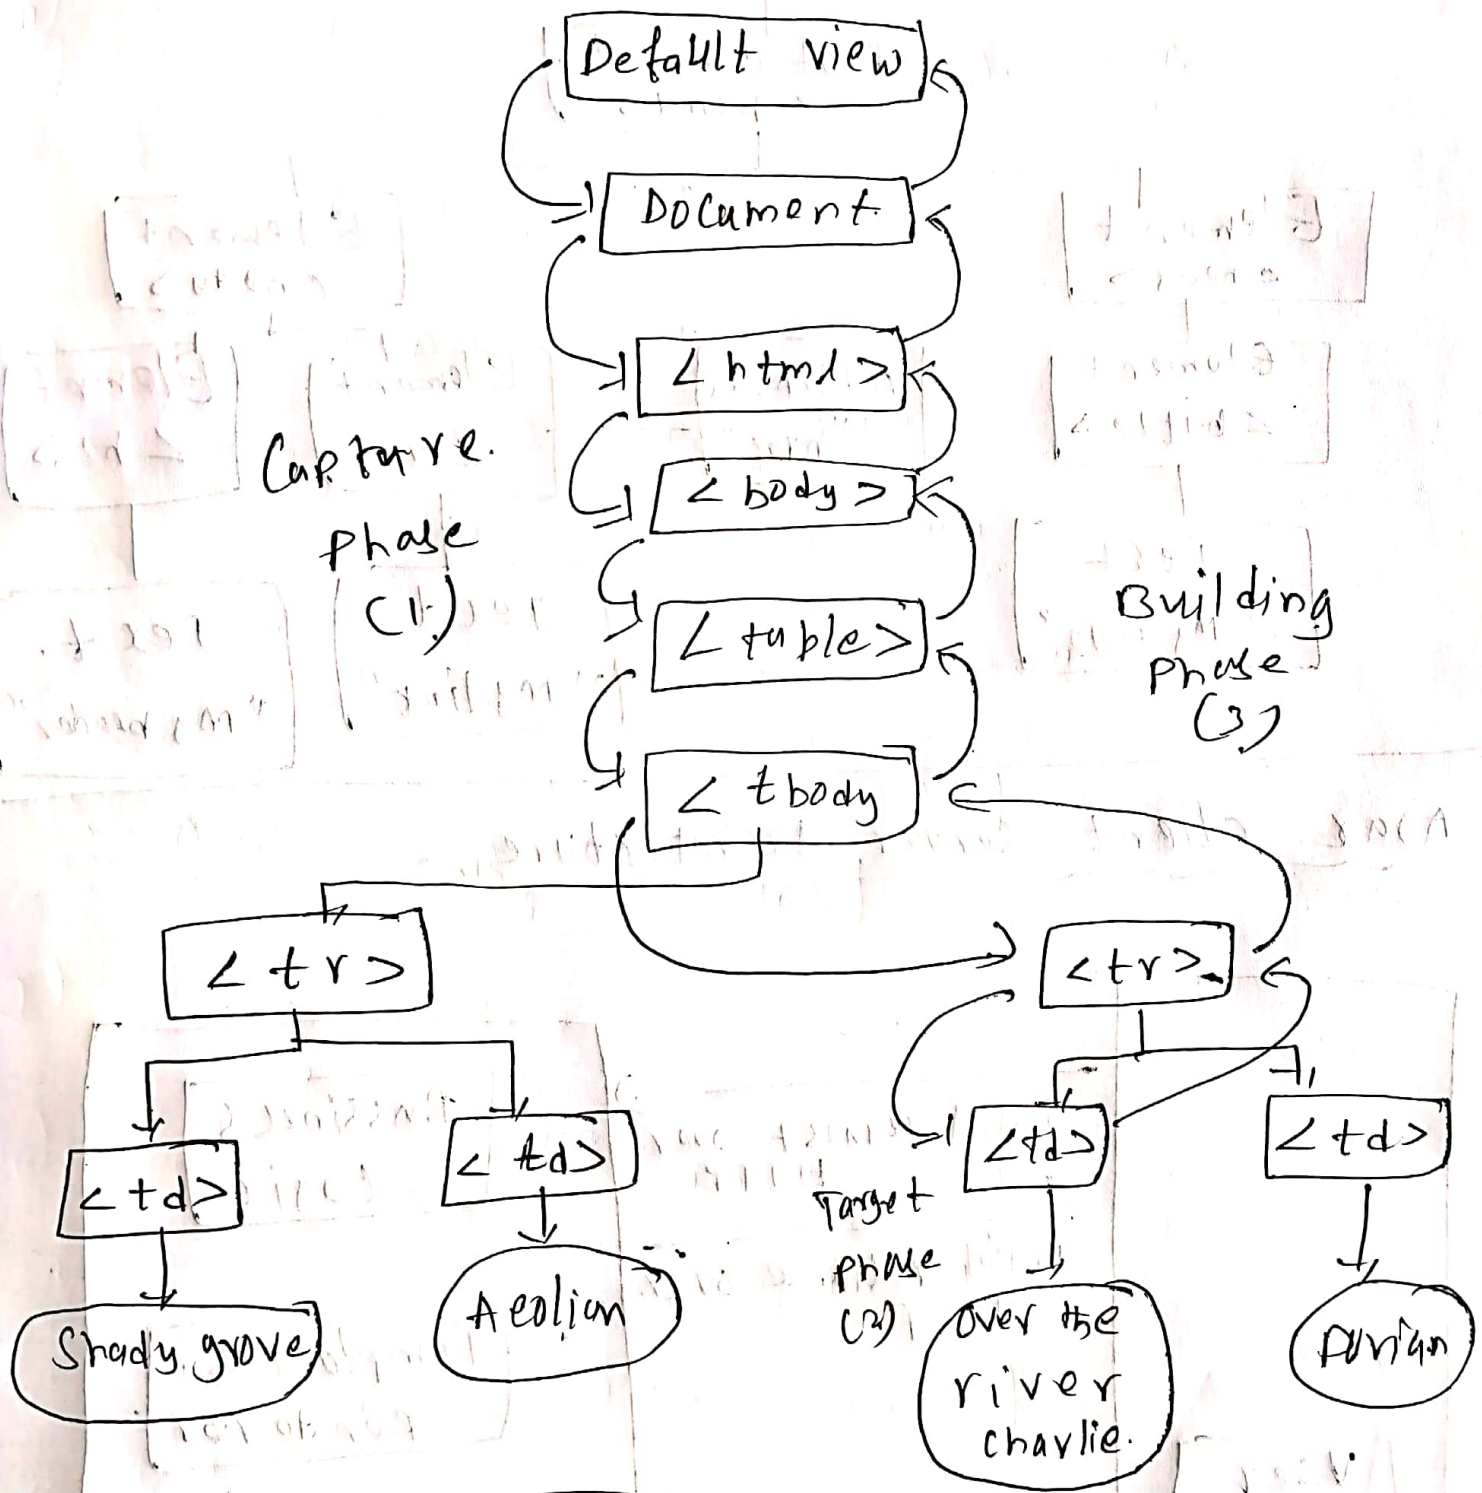 Default view
Document
< html >
< body >
Capture
phase
(1)
< table >
Building
phase
(3)
< tbody
< tr >
< tr >
< td >
< td >
< td >
< td >
Target
phase
(2)
Shady grove
Aeolian
over the
river
charlie.
Dorian